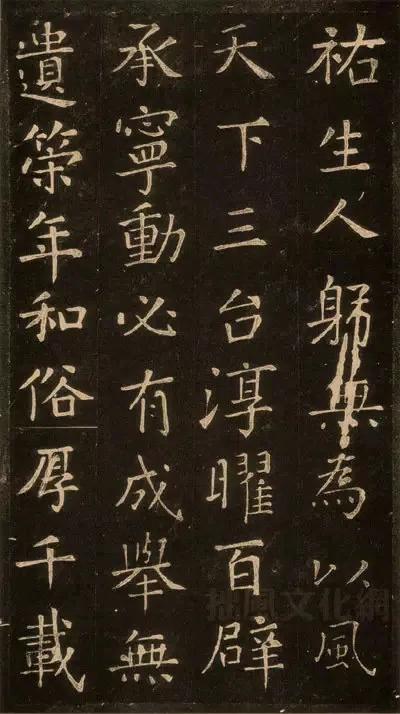 祐生人躬無為以風
天下三台淳曜百辟
承寧動必有成舉無
遺策年和俗厚千載
拙風文化網